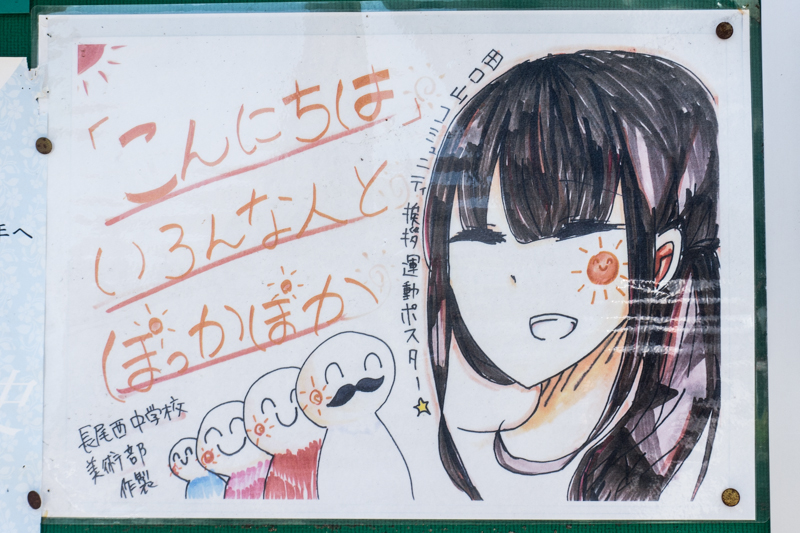 「こんにちは」
いろんな人と
ぽっかぽか
田口山コミュニティ 挨拶運動ポスター☆
長尾西中学校
美術部
作製